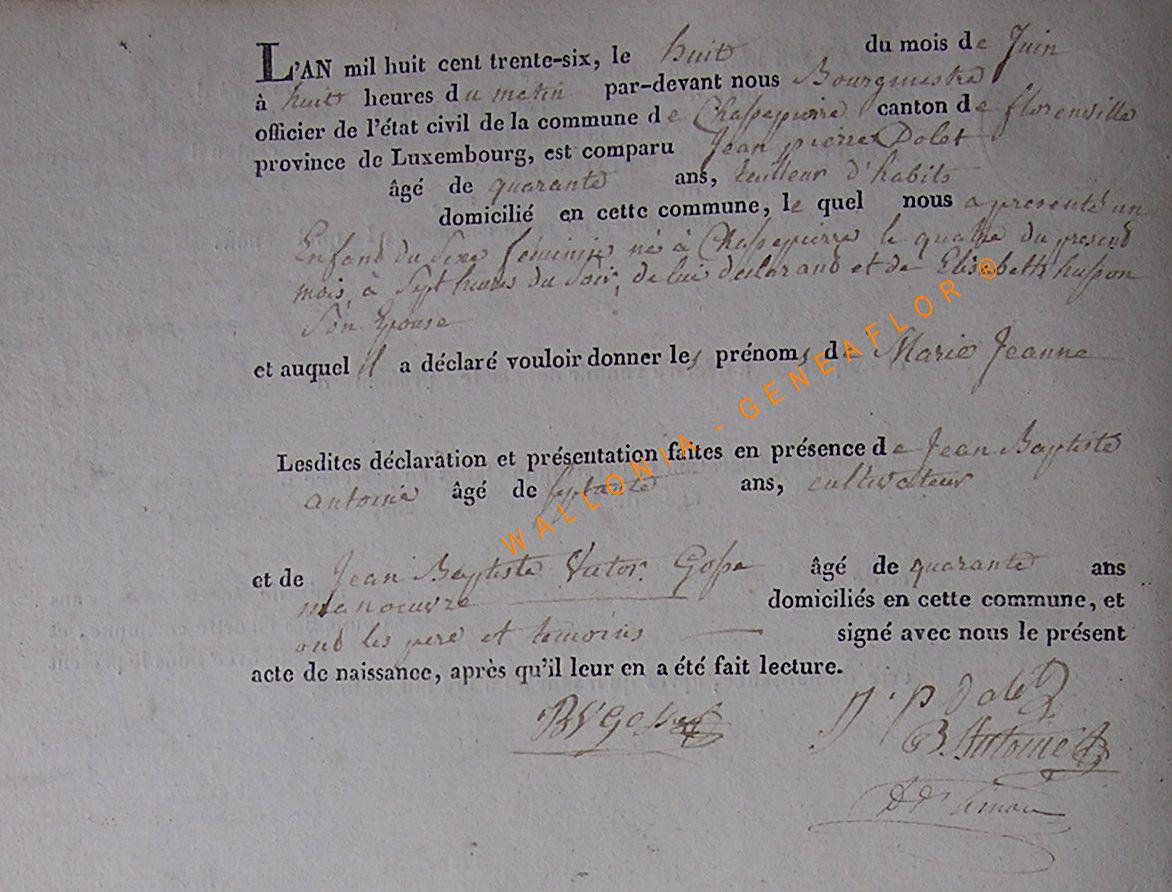 L'AN mil huit cent trente-six, le huit du mois de Juin
à huit heures du matin par-devant nous Bourgmestre
officier de l'état civil de la commune de Chassepierre canton de florenville
province de Luxembourg, est comparu Jean pierre Dolet
âgé de quarante ans, tailleur d'habits
domicilié en cette commune, le quel nous a presenté un
Enfant du Sexe féminin né à Chassepierre le quatre du present
mois, à Sept heures du Soir, de lui declarant et de Elisabeth husson
Son Epouse
et auquel il a déclaré vouloir donner les prénoms de Marie Jeanne
Lesdites déclaration et présentation faites en présence de Jean Baptiste
antoine âgé de septante ans, cultivateur
et de Jean Baptiste Victor Gosse âgé de quarante ans
manoeuvre domiciliés en cette commune, et
ont les pere et temoins signé avec nous le présent
acte de naissance, après qu'il leur en a été fait lecture.
J. p Dolet
B. Antoine
WALLONIA - GENEAFLOR ®